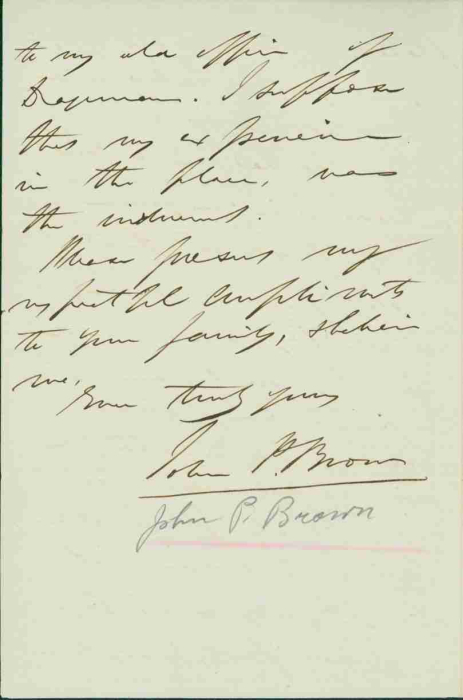 to my old office of
Dragoman. I suppose
that my experience
in the place, was
the inducement.
Please present my
respectful compliments
to your family, & believe
me,
Ever truly yours
John P. Brown
John P. Brown